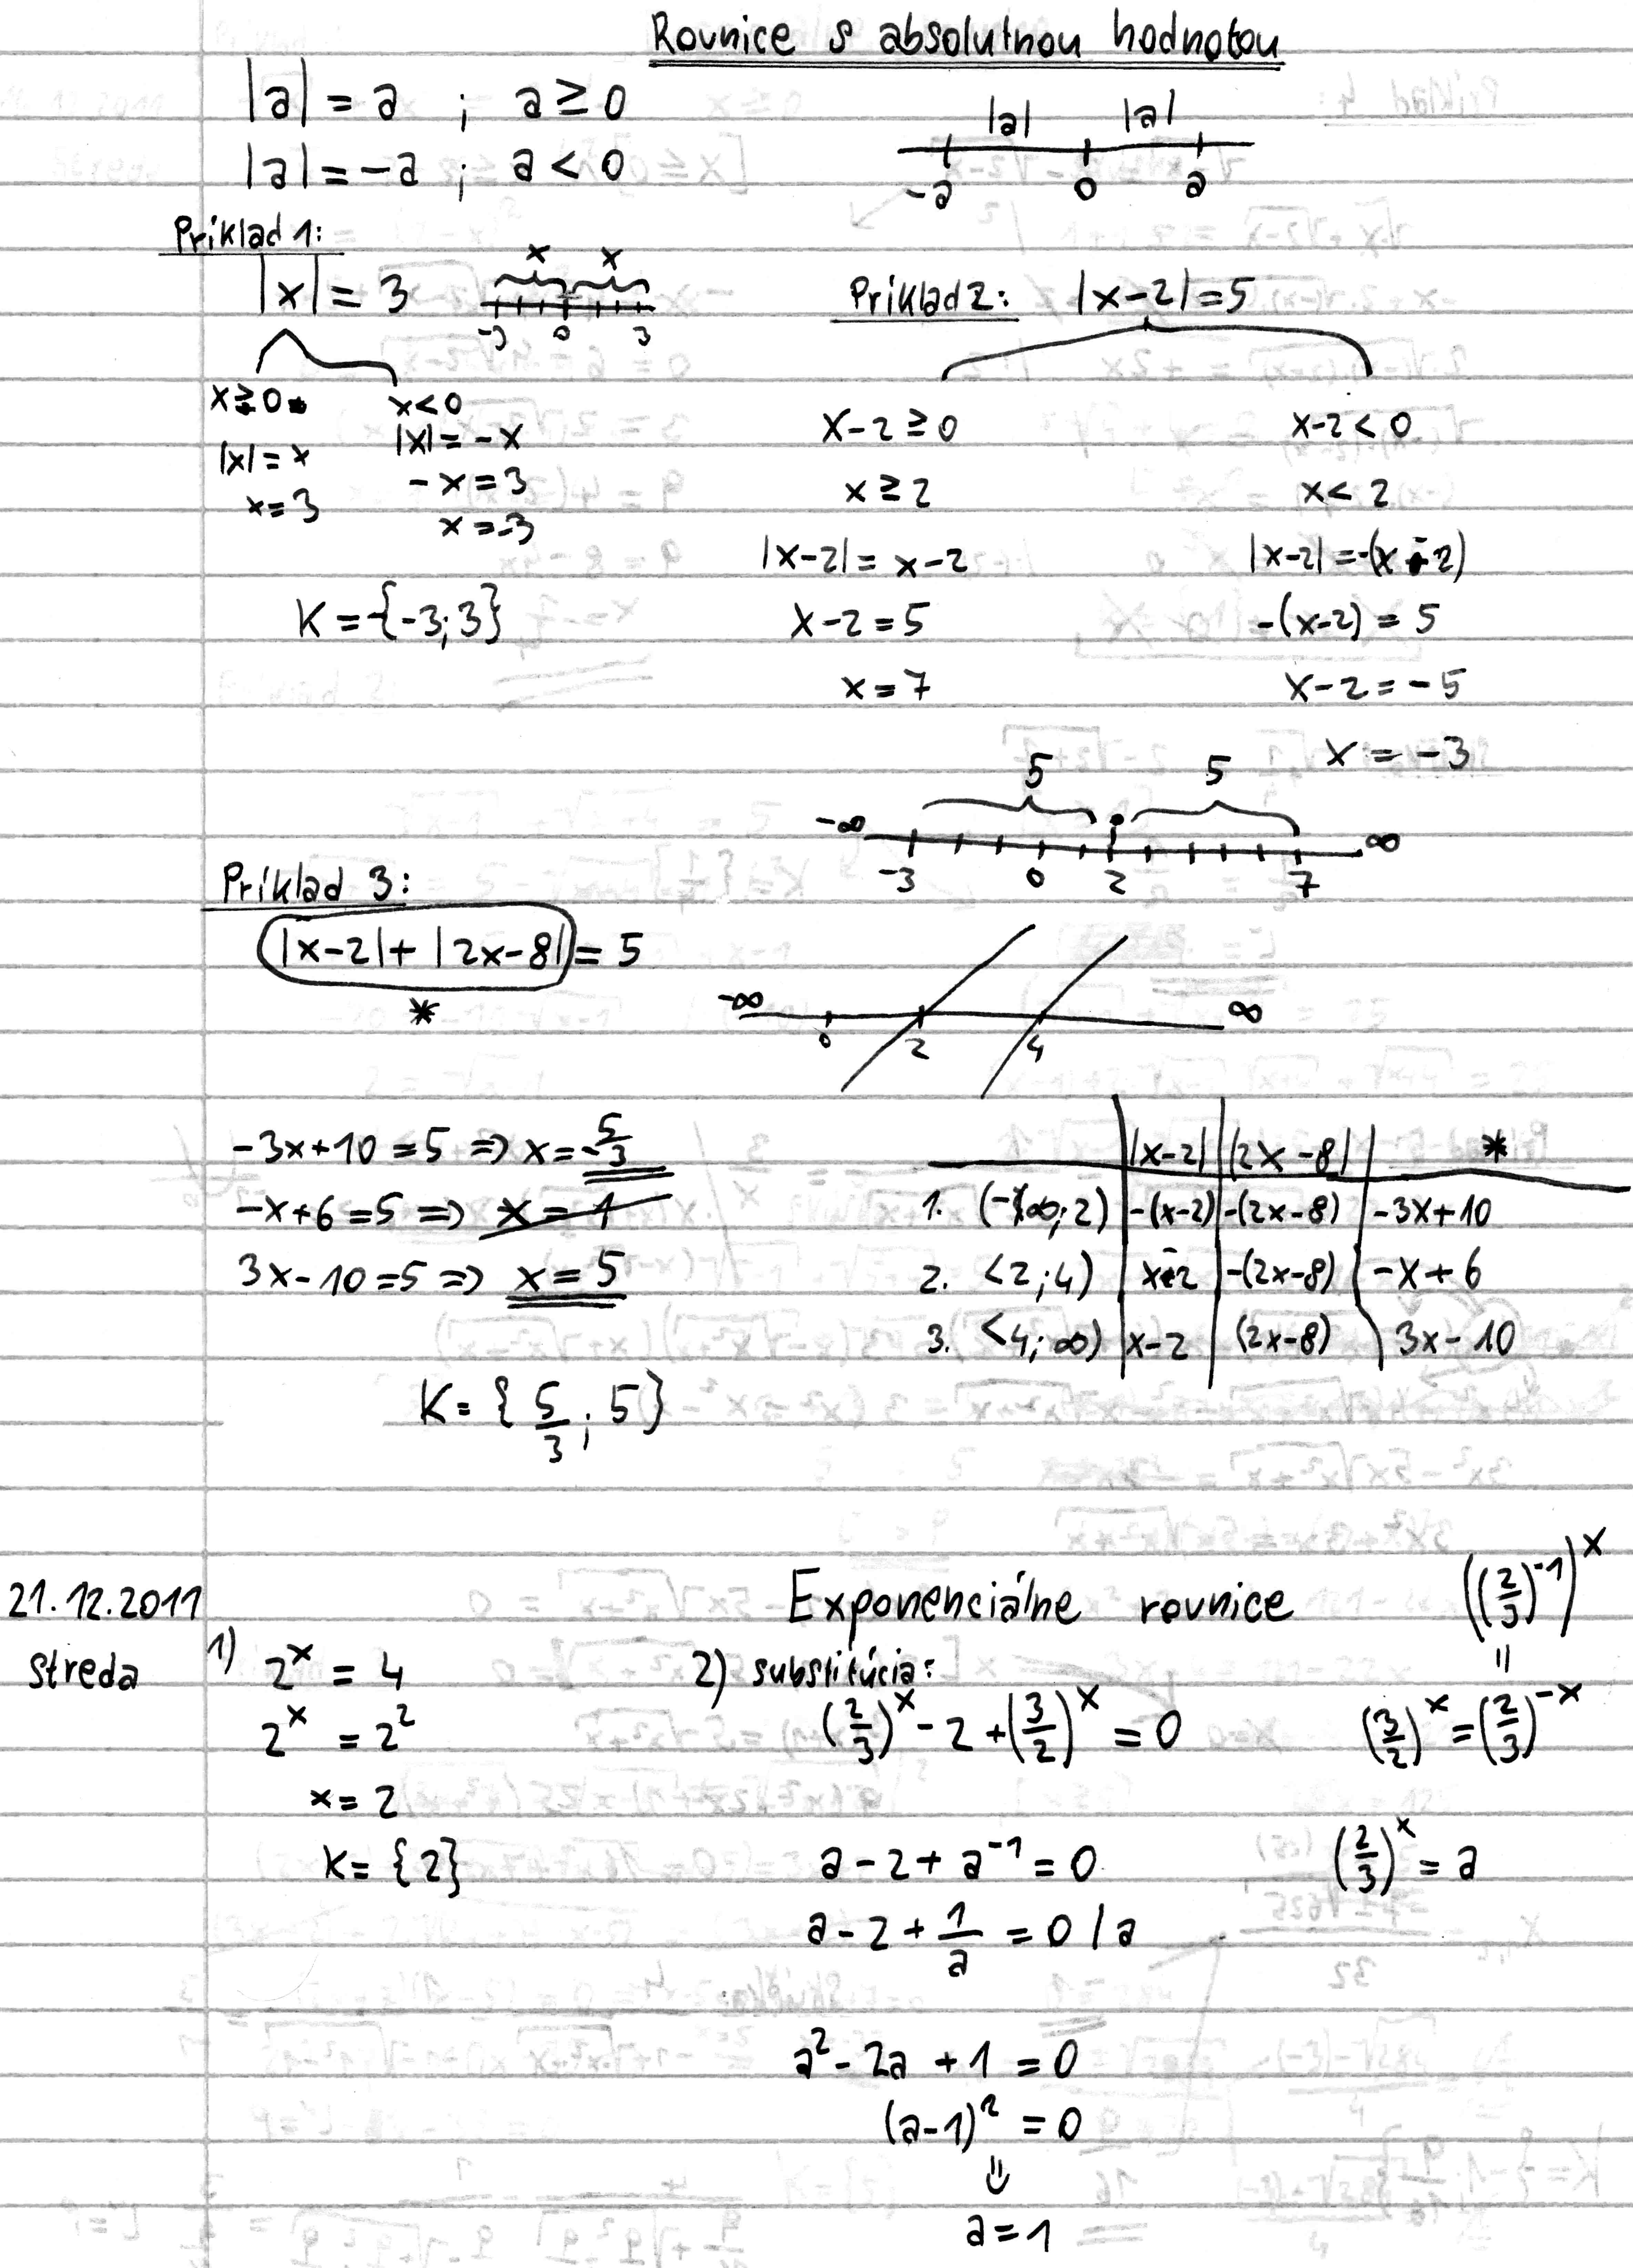 Rovnice s absolutnou hodnotou
|a| = a ; a ≥ 0
|a| = -a ; a < 0
|a| |a|
-a 0 a
Príklad 1:
|x| = 3
x x
-3 0 3
x ≥ 0
|x| = x
x = 3
x < 0
|x| = -x
-x = 3
x = -3
K = {-3; 3}
Príklad 2: |x-2| = 5
x-2 ≥ 0
x ≥ 2
|x-2| = x-2
x-2 = 5
x = 7
x-2 < 0
x < 2
|x-2| = -(x-2)
-(x-2) = 5
x-2 = -5
x = -3
5 5
-∞ -3 0 2 7 ∞
Príklad 3:
|x-2| + |2x-8| = 5
*
-∞ 0 2 4 ∞
-3x+10 = 5 => x = 5/3
-x+6 = 5 => x = 1
3x-10 = 5 => x = 5
|x-2| |2x-8| *
1. (-∞; 2) -(x-2) -(2x-8) -3x+10
2. <2; 4) x-2 -(2x-8) -x+6
3. <4; ∞) x-2 (2x-8) 3x-10
K = { 5/3 ; 5 }
21.12.2011
streda
Exponenciálne rovnice
1)
2^x = 4
2^x = 2^2
x = 2
K = {2}
2) substitúcia:
(2/3)^x - 2 + (3/2)^x = 0
a - 2 + a^-1 = 0
a - 2 + 1/a = 0 / a
a² - 2a + 1 = 0
(a-1)² = 0
⇓
a = 1
((2/3)^-1)^x
=
(3/2)^x = (2/3)^-x
(2/3)^x = a